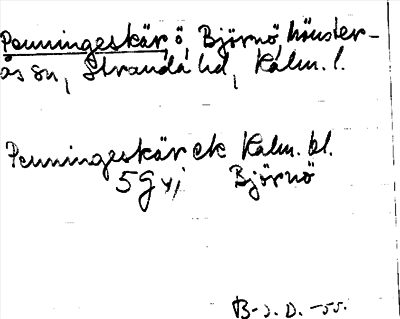 Penningeskär, ö, Björnö, Mönster-
ås sn, Stranda hd, Kalm. l.
Penningeskär ek Kalm. bl.
5 G vj Björnö
B-s. D. -55.